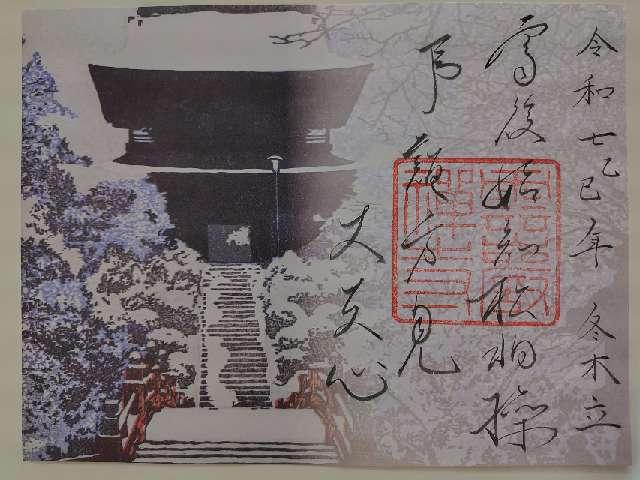 令和七乙巳年 冬木立
雪後始知松柏操
事難方見
丈夫心